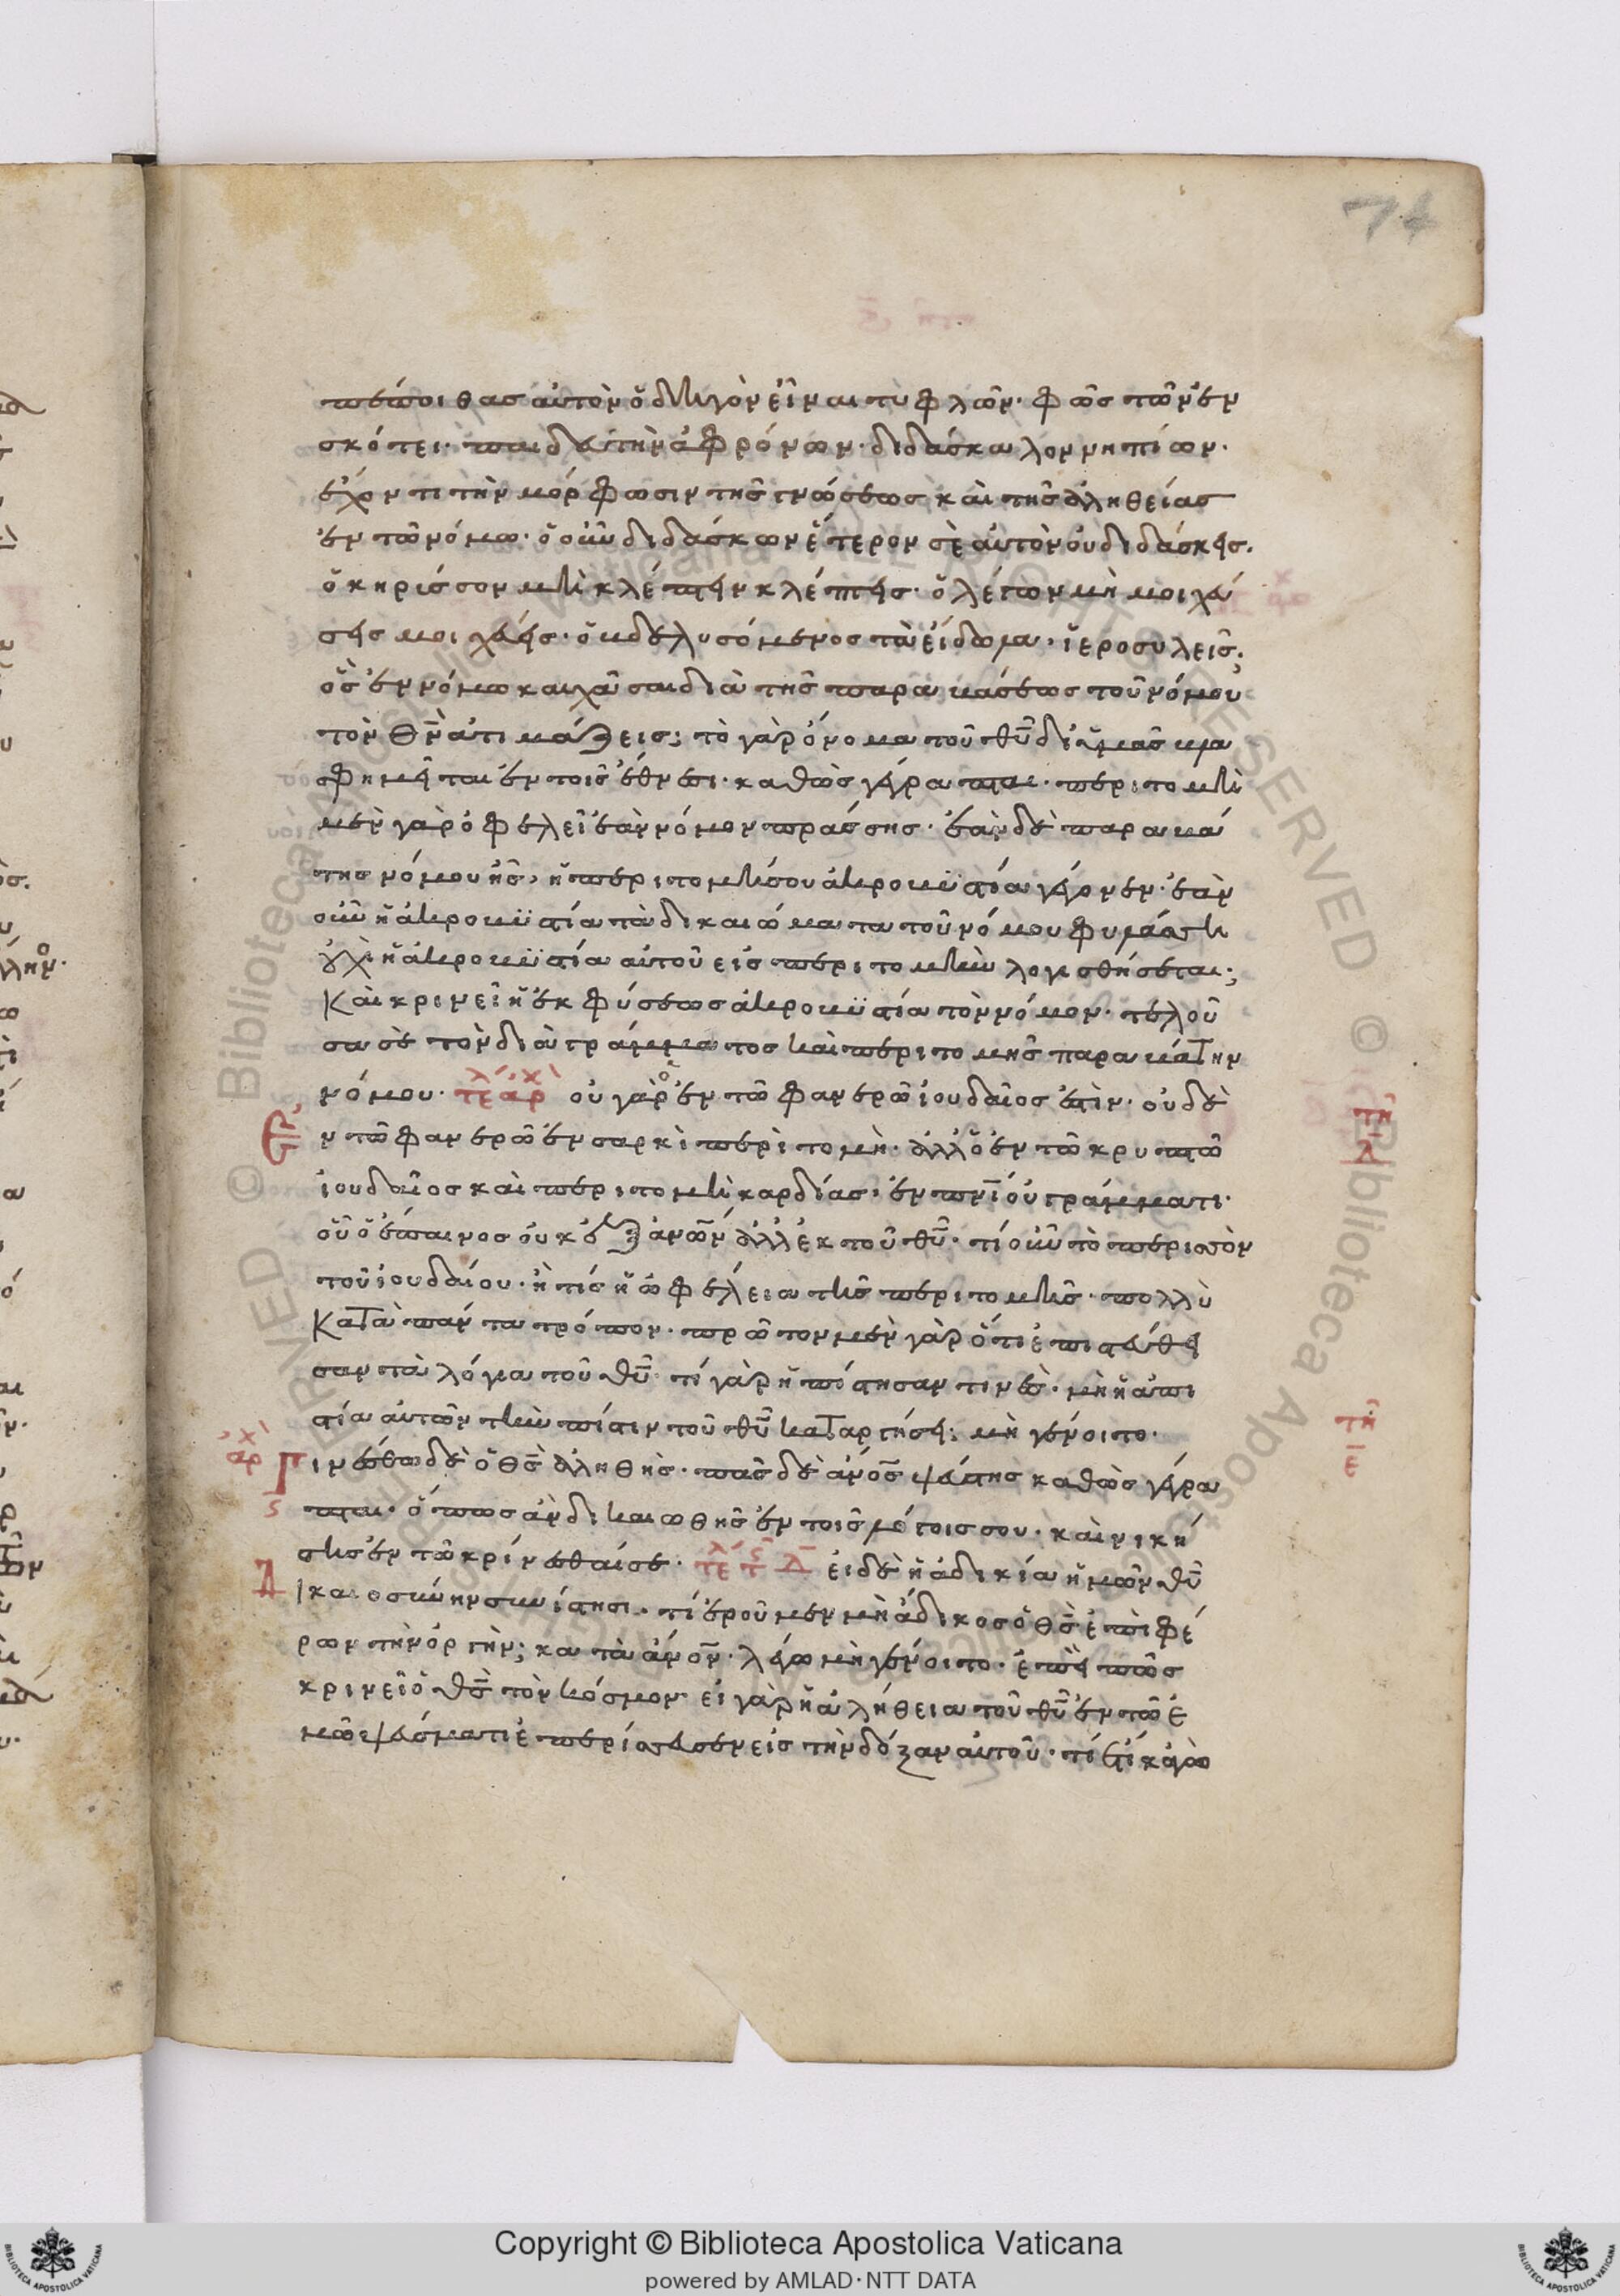 74
πέποιθας αὐτὸν ὁδηγὸν εἶναι τυφλῶν· φῶς τῶν ἐν
σκότει· παιδευτὴν ἀφρόνων· διδάσκαλον νηπίων·
ἔχοντι τὴν μόρφωσιν τῆς γνώσεως καὶ τῆς ἀληθείας
ἐν τῶ νόμω· ὁ οὖν διδάσκων ἕτερον σὲ αὐτὸν οὐ διδάσκεις·
ὁ κηρίσσον μὴ κλέπτειν κλέπτεις· ὁ λέγων μὴ μοιχεύ
σεις μοιχεύεις· ὁ βδελυσόμενος τὰ εἴδωλα· ἱεροσυλεῖς;
ὃς ἐν νόμω καυχᾶσαι διὰ τῆς παραβάσεως τοῦ νόμου
τὸν θν ἀτιμάζεις; τὸ γὰρ ὄνομα τοῦ θυ δι' ὑμᾶς βλα
σφημεῖται ἐν τοῖς ἔθνεσι· καθὼς γέγραπται· περιτομὴ
μὲν γὰρ ὀφελεῖ ἐὰν νόμον πράσσης· ἐὰν δὲ παραβά
της νόμου ῆς, ἡ περιτομή σου ἀκροβυστία γέγονεν· ἐὰν
οὖν ἡ ἀκροβυστία τὰ δικαιώματα τοῦ νόμου φυλάσση
οὐχὶ ἡ ἀκροβυστία αὐτοῦ εἰς περιτομὴν λογισθήσεται;
Καὶ κρινεῖ ἡ ἐκ φύσεως ἀκροβυστία τὸν νόμον· τελοῦ
σα σὲ τὸν διὰ γράμματος καὶ περιτομῆς παραβάτην
νόμου· τε αρχ οὐ γὰρ ὁ ἐν τῶ φανερῶ ἰουδαῖος ἐστίν· οὐδὲ
ν τῶ φανερῶ ἐν σαρκὶ περὶτομὴ· ἀλλ' ὁ ἐν τῶ κρυπτῶ
ἰουδαῖος καὶ περιτομὴ καρδίας· ἐν πνι οὐ γράμματι·
οὗ ὁ ἔπαινος οὐκ ἐξ ἀνων ἀλλ' ἐκ τοῦ θυ· τί οὖν τὸ περισσὸν
τοῦ ἰουδαίου· ἢ τίς ἡ ὠφέλεια τῆς περιτομῆς· πολλὺ
Κατὰ πάντα τρόπον· πρῶτον μὲν γὰρ ὅτι ἐπιστεύθη
σαν τὰ λόγια τοῦ θυ τί γὰρ ἡπίστησαν τινὲς· μὴ ἡ ἀπι
στία αὐτῶν τὴν πίστιν τοῦ θυ καταργήσει; μὴ γένοιτο·
αρχ Γινέσθω δὲ ὁ θς ἀληθής· πᾶς δὲ ἄνος ψεύστης καθὼς γέγρα
πται· ὅπως ἂν δικαιωθῆς ἐν τοῖς λόγοις σου· καὶ νική
σης ἐν τῶ κρίνεσθαί σε· εἰ δὲ ἡ ἀδικία ἡμῶν θυ
Δικαιοσύνην συνίστησι· τί ἐροῦμεν μὴ ἄδικος ὁ θς ἐπιφέ
ρων τὴν ὀργήν; κατὰ ἄνον λέγω μὴ γένοιτο· ἐπεὶ πῶς
κρινεῖ ὁ θς τὸν κόσμον· εἰ γὰρ ἡ ἀλήθεια τοῦ θυ ἐν τῶ ἐ
μῶ ψεύσματι ἐπερίσσευσεν εἰς τὴν δόξαν αὐτοῦ· τί ἔτι κἀγὼ
Copyright © Biblioteca Apostolica Vaticana
powered by AMLAD·NTT DATA